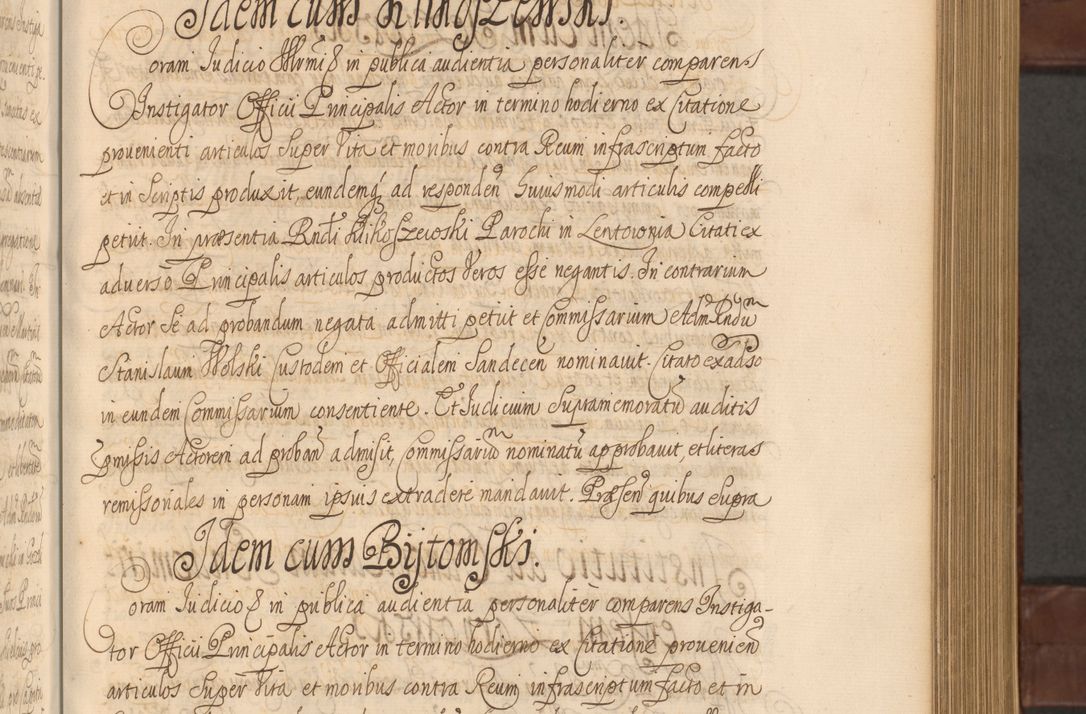 Idem cum Klikoszewski.
Coram Iudicio Illmi &c in publica audientia personaliter comparens
Instigator Officii Principalis Actor in termino hodierno ex Citatione
provenienti articulos super vita et moribus contra Reum infrascriptum facto
et in scriptis produxit, eundemq ad responden huiusmodi articulis compelli
petiit. In præsentia Rndi Klikoszewski Parochi in Lentownia Citati ex
adverso Principalis articulos productos veros esse negantis. In contrarium
Actor se ad probandum negata admitti petiit et Commissarium Adm Rndum
Stanislaum Wolski Custodem et Officialem Sandecen nominavit. Citato ex adso
in eundem Commissarium consentiente. Et Iudicium supramemoratu auditis
pmissis Actorem ad proban admisit, Commissariu nominatu approbavit, et literas
remissoriales in personam ipsius extradere mandavit. Præsen quibus supra
Idem cum Bijtomski.
Coram Iudicio &c in publica audientia personaliter comparens Instiga-
tor Officii Principalis Actor in termino hodierno ex Citatione provenien
articulos super vita et moribus contra Reum infrascriptum facto et in